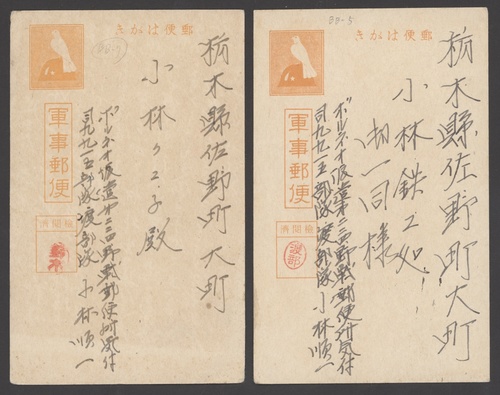 郵便はがき
栃木縣佐野町大町
小林クエ子殿
ボルネオ派遣第三四野戰郵便所気付
司九九一五部隊渡部隊 小林順一
軍事郵便
檢閲済
BD-5
郵便はがき
栃木縣佐野町大町
小林鉄工処
御一同様
ボルネオ派遣第三四野戰郵便所気付
司九九一五部隊渡部隊 小林順一
軍事郵便
檢閲済
渡部